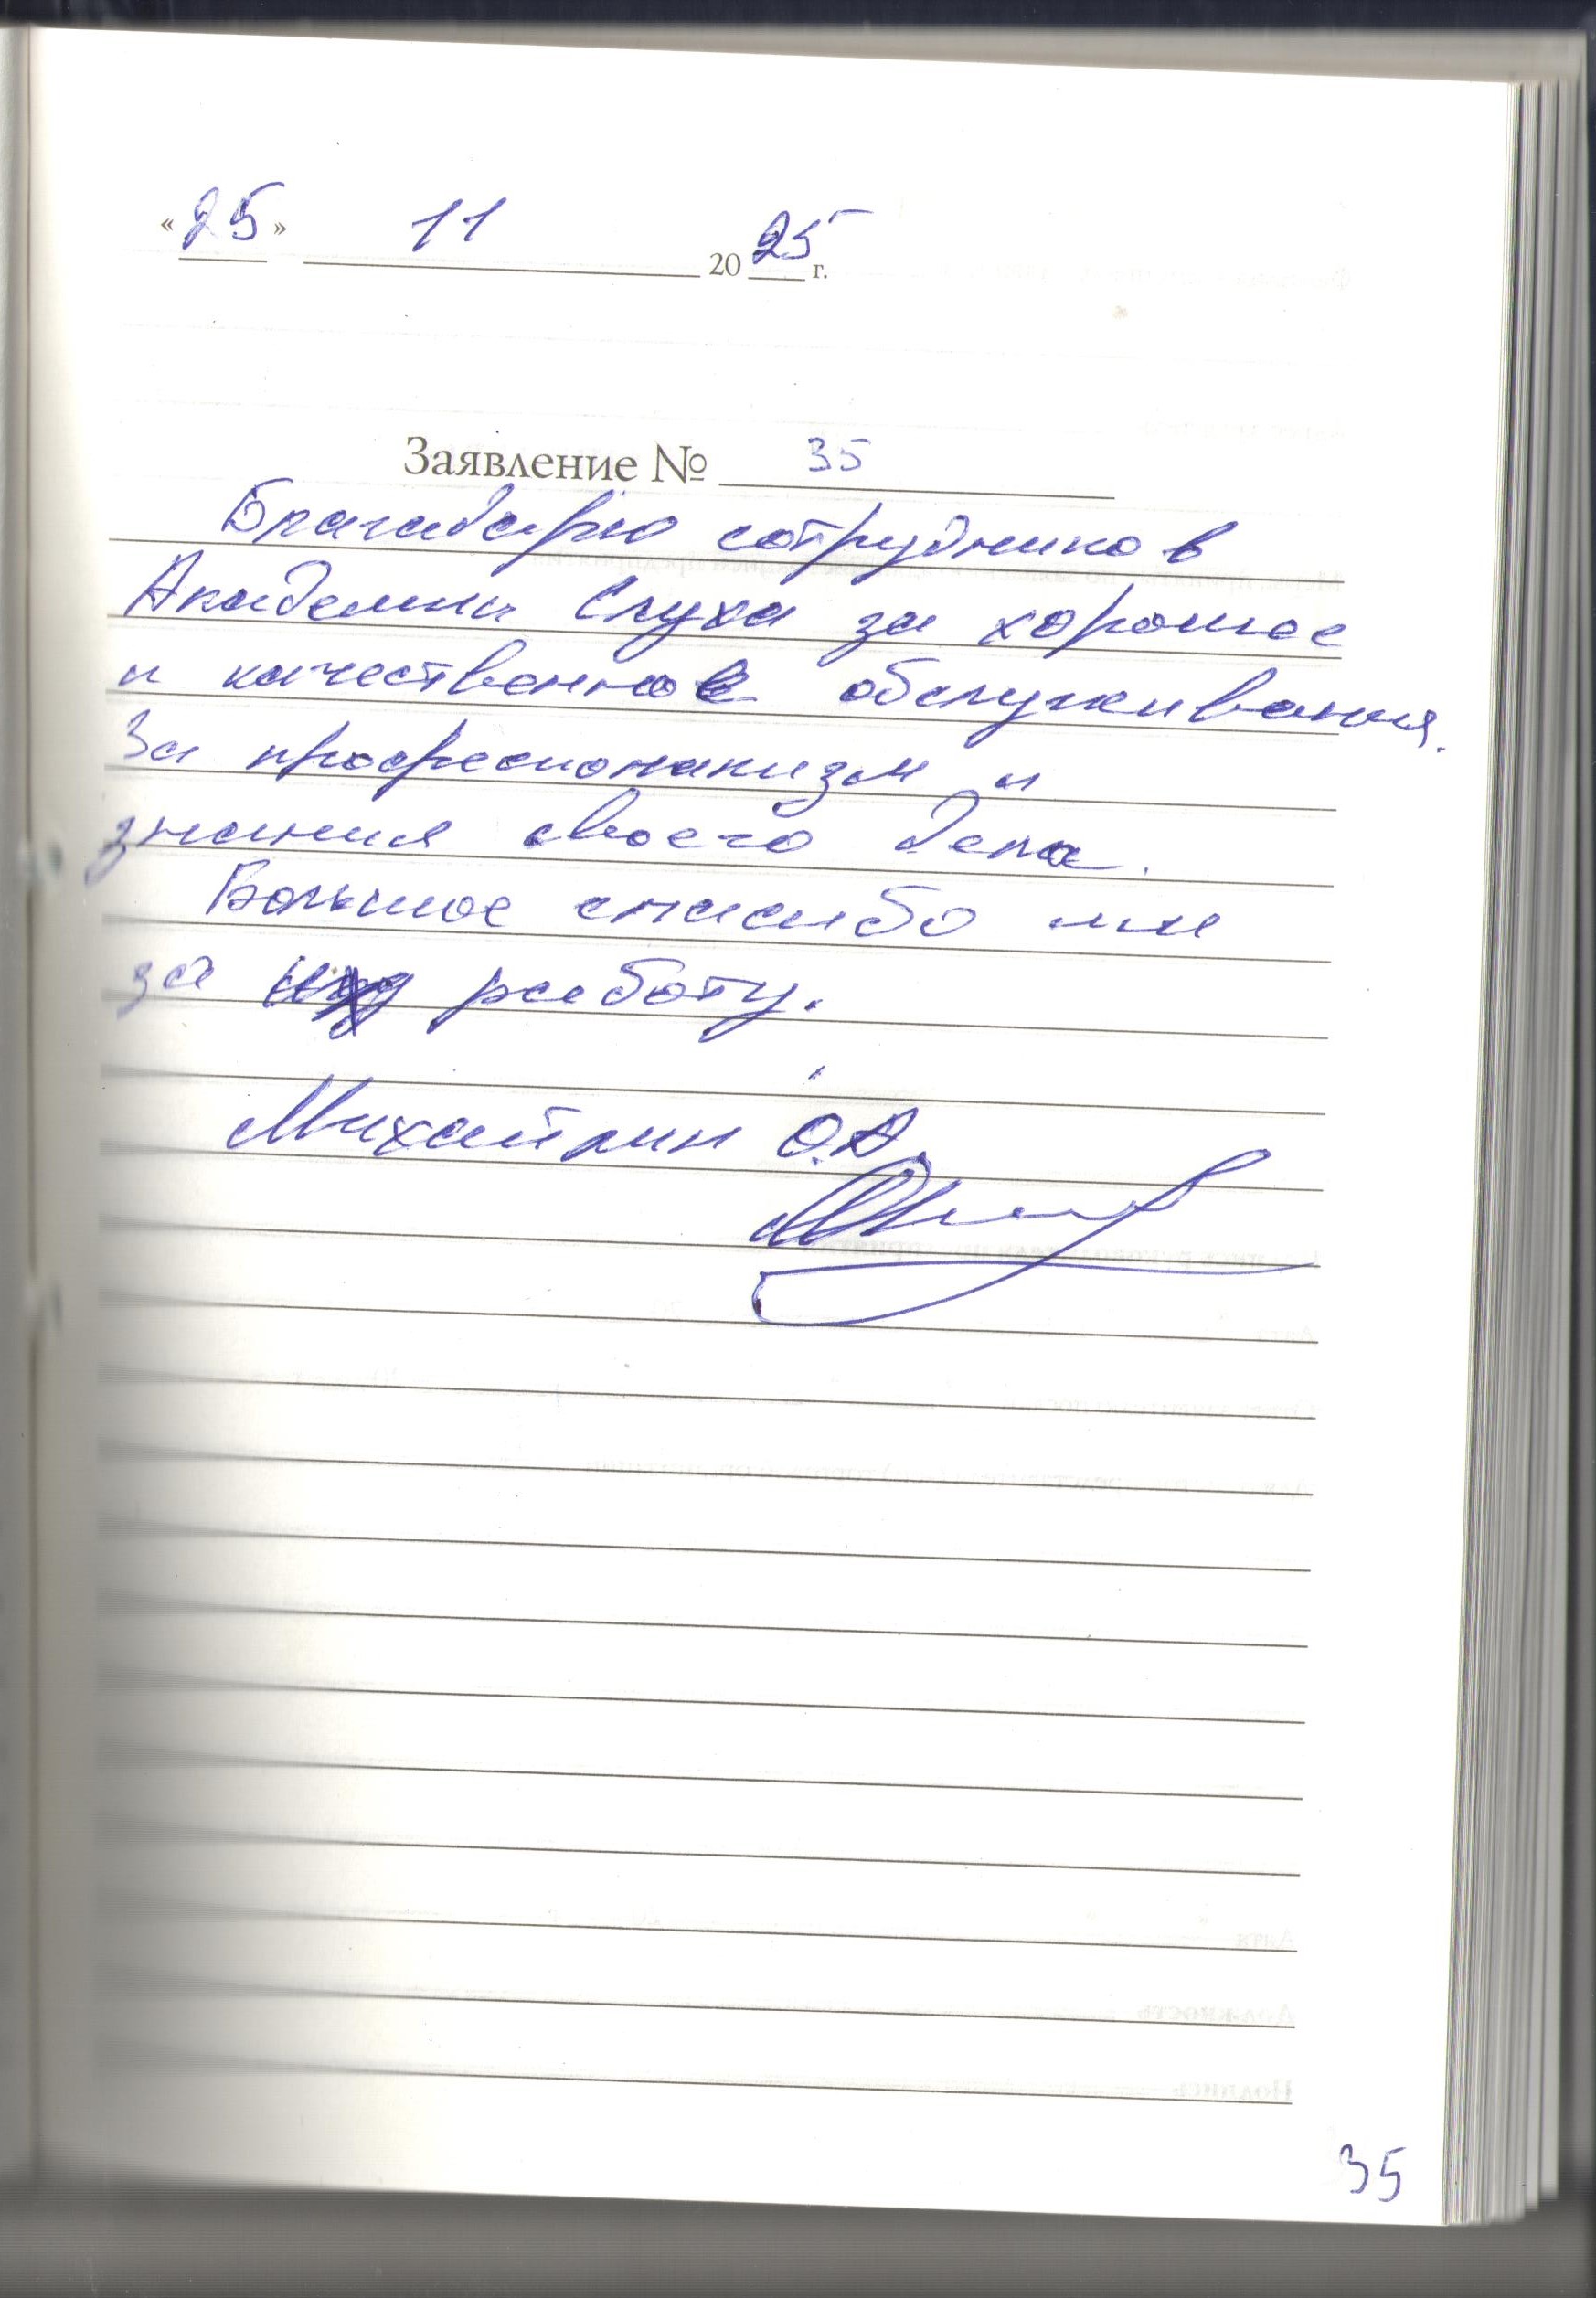 «25» 11 2025 г.
Заявление № 35
Благадарю сотрудников
Академии Слуха за хорошее
и качественное обслуживания.
За професионализм и
знания своего дела.
Большое спасибо им
за работу.
Михайлин О.А.
35